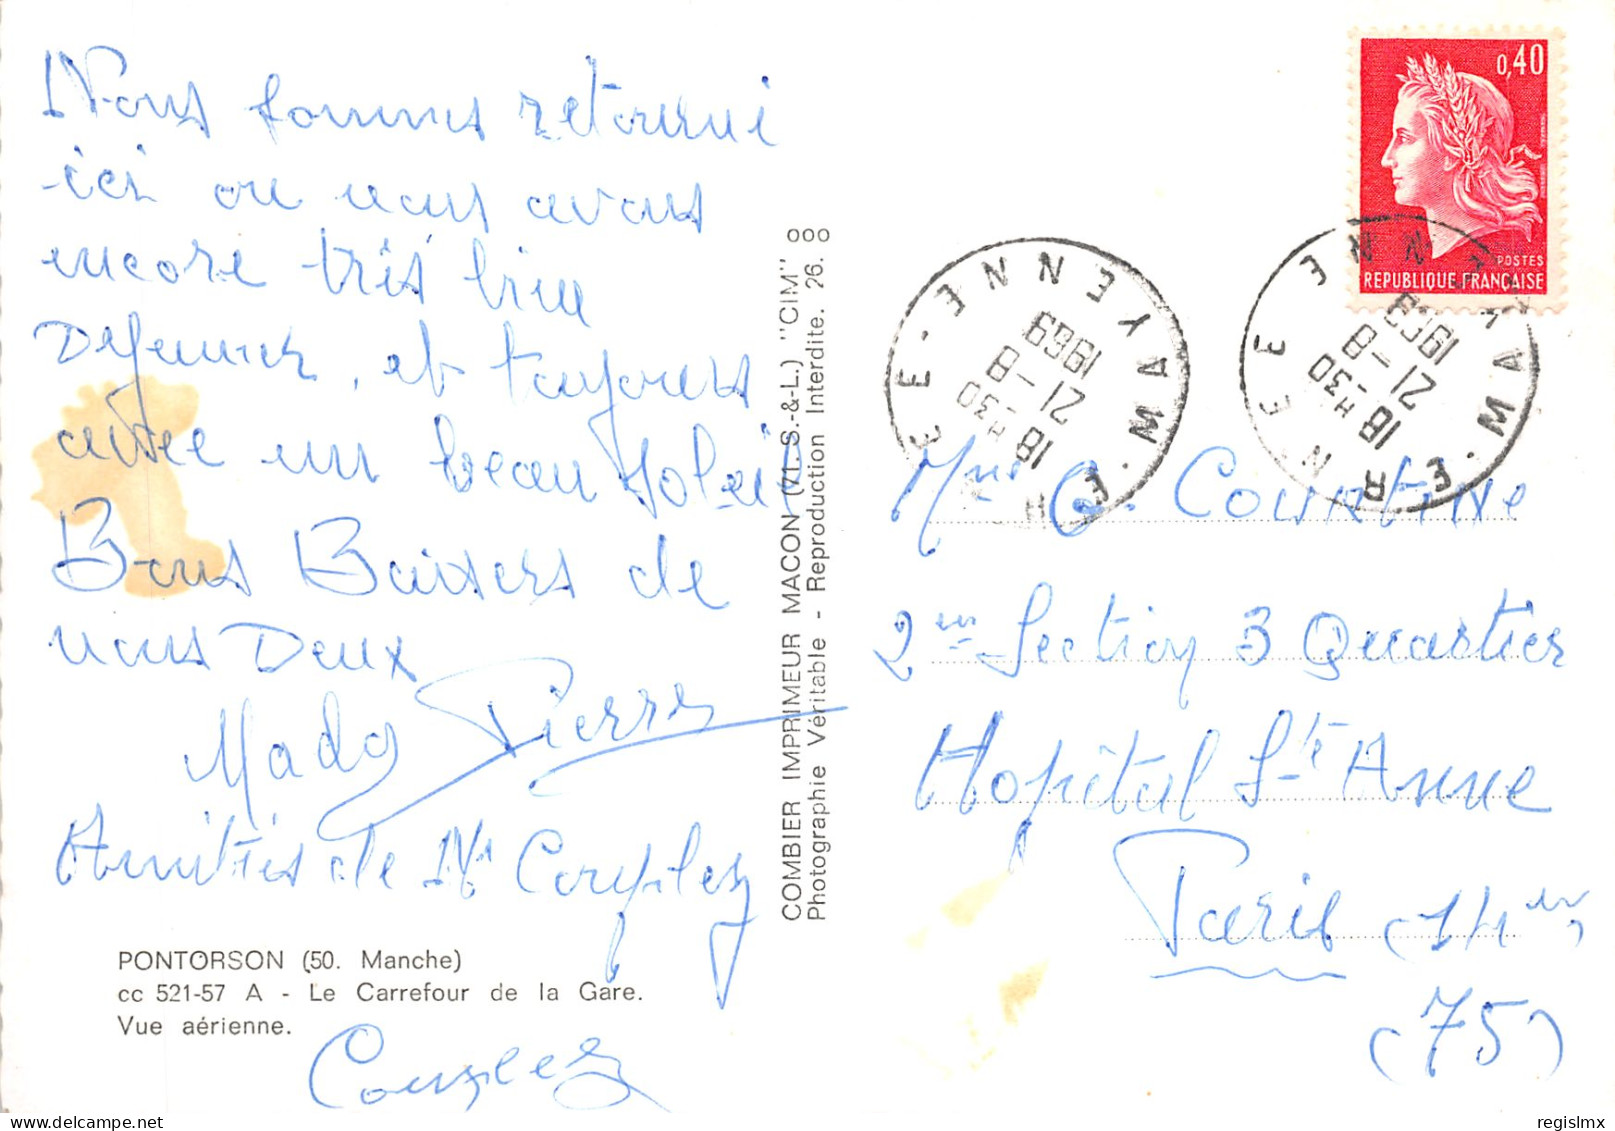 Nous sommes retourni
ici ou nous avons
encore très bien
Dejeuner, et toujours
avec un beau soleil
Bons Baisers de
nous Deux
Mado Pierre
Amitiés de
PONTORSON (50. Manche)
cc 521-57 A - Le Carrefour de la Gare.
Vue aérienne.
COMBIER IMPRIMEUR MACON (71 S.-&-L.) "CIM"
Photographie Véritable - Reproduction Interdite. 26.
0,40
POSTES
REPUBLIQUE FRANÇAISE
ERNEE · MAYENNE
18 H 30
21 - 8
1969
ERNEE · MAYENNE
18 H 30
21 - 8
1969
Mme G. Courtine
2me Section 3 Quartier
Hopital Ste Anne
Paris (14em)
(75)
regislmx